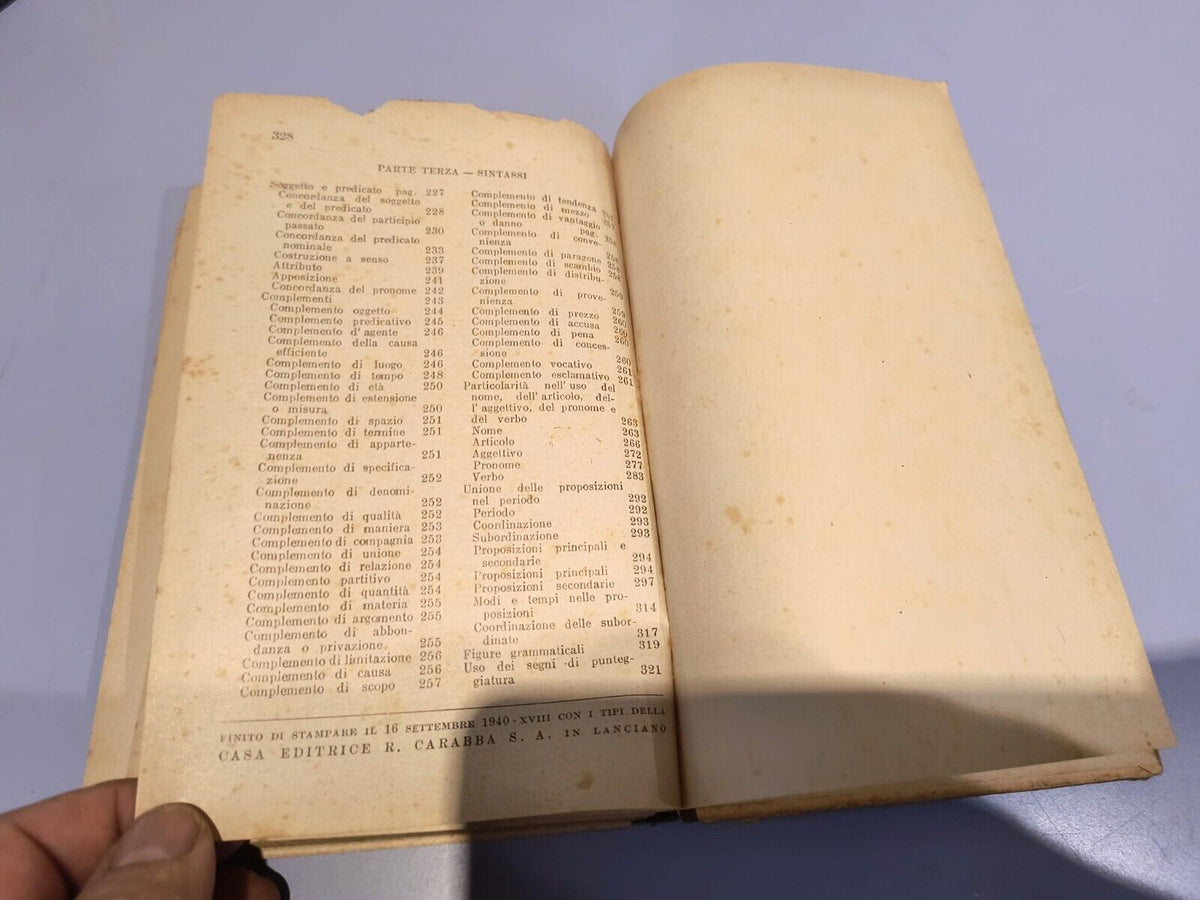 328
PARTE TERZA — SINTASSI
Soggetto e predicato pag. 227
Concordanza del soggetto
e del predicato 228
Concordanza del participio
passato 230
Concordanza del predicato
nominale 233
Costruzione a senso 237
Attributo 239
Apposizione 241
Concordanza del pronome 242
Complementi 243
Complemento oggetto 244
Complemento predicativo 245
Complemento d'agente 246
Complemento della causa
efficiente 246
Complemento di luogo 246
Complemento di tempo 248
Complemento di età 250
Complemento di estensione
o misura 250
Complemento di spazio 251
Complemento di termine 251
Complemento di apparte-
nenza 251
Complemento di specifica-
zione 252
Complemento di denomi-
nazione 252
Complemento di qualità 252
Complemento di maniera 253
Complemento di compagnia 253
Complemento di unione 254
Complemento di relazione 254
Complemento partitivo 254
Complemento di quantità 254
Complemento di materia 255
Complemento di argomento 255
Complemento di abbon-
danza o privazione 255
Complemento di limitazione 256
Complemento di causa 256
Complemento di scopo 257
Complemento di tendenza
Complemento di mezzo 257
Complemento di vantaggio
o danno pag.
Complemento di conve-
nienza
Complemento di paragone 258
Complemento di scambio 258
Complemento di distribu-
zione
Complemento di prove-
nienza
Complemento di prezzo 259
Complemento di accusa 260
Complemento di pena 260
Complemento di conces-
sione 260
Complemento vocativo 261
Complemento esclamativo 261
Particolarità nell'uso del
nome, dell'articolo, del-
l'aggettivo, del pronome e
del verbo 263
Nome 263
Articolo 266
Aggettivo 272
Pronome 277
Verbo 283
Unione delle proposizioni
nel periodo 292
Periodo 292
Coordinazione 293
Subordinazione 293
Proposizioni principali e
secondarie 294
Proposizioni principali 294
Proposizioni secondarie 297
Modi e tempi nelle pro-
posizioni 314
Coordinazione delle subor-
dinate 317
Figure grammaticali 319
Uso dei segni di punteg-
giatura 321
FINITO DI STAMPARE IL 16 SETTEMBRE 1940-XVIII CON I TIPI DELLA
CASA EDITRICE R. CARABBA S. A. IN LANCIANO